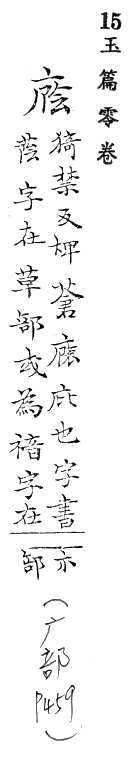 15玉篇零卷
廕
猗禁反埤蒼廕庇也字書
蔭字在草部或為字在
示部
(广部
P459)